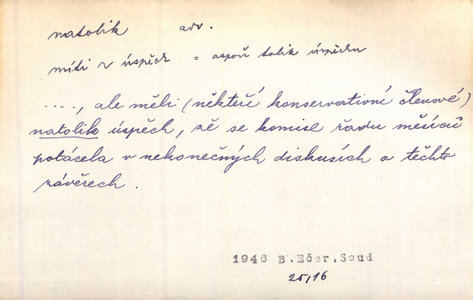 natolik adv.
míti n úspěch = aspoň tolik úspěchu
...., ale měli (někteří konservativní členové)
natolik úspěch, že se komise řadu měsíců
potácela v nekonečných diskusích o těchto
závěrech.
1946 B.Ečer,Soud
25,16